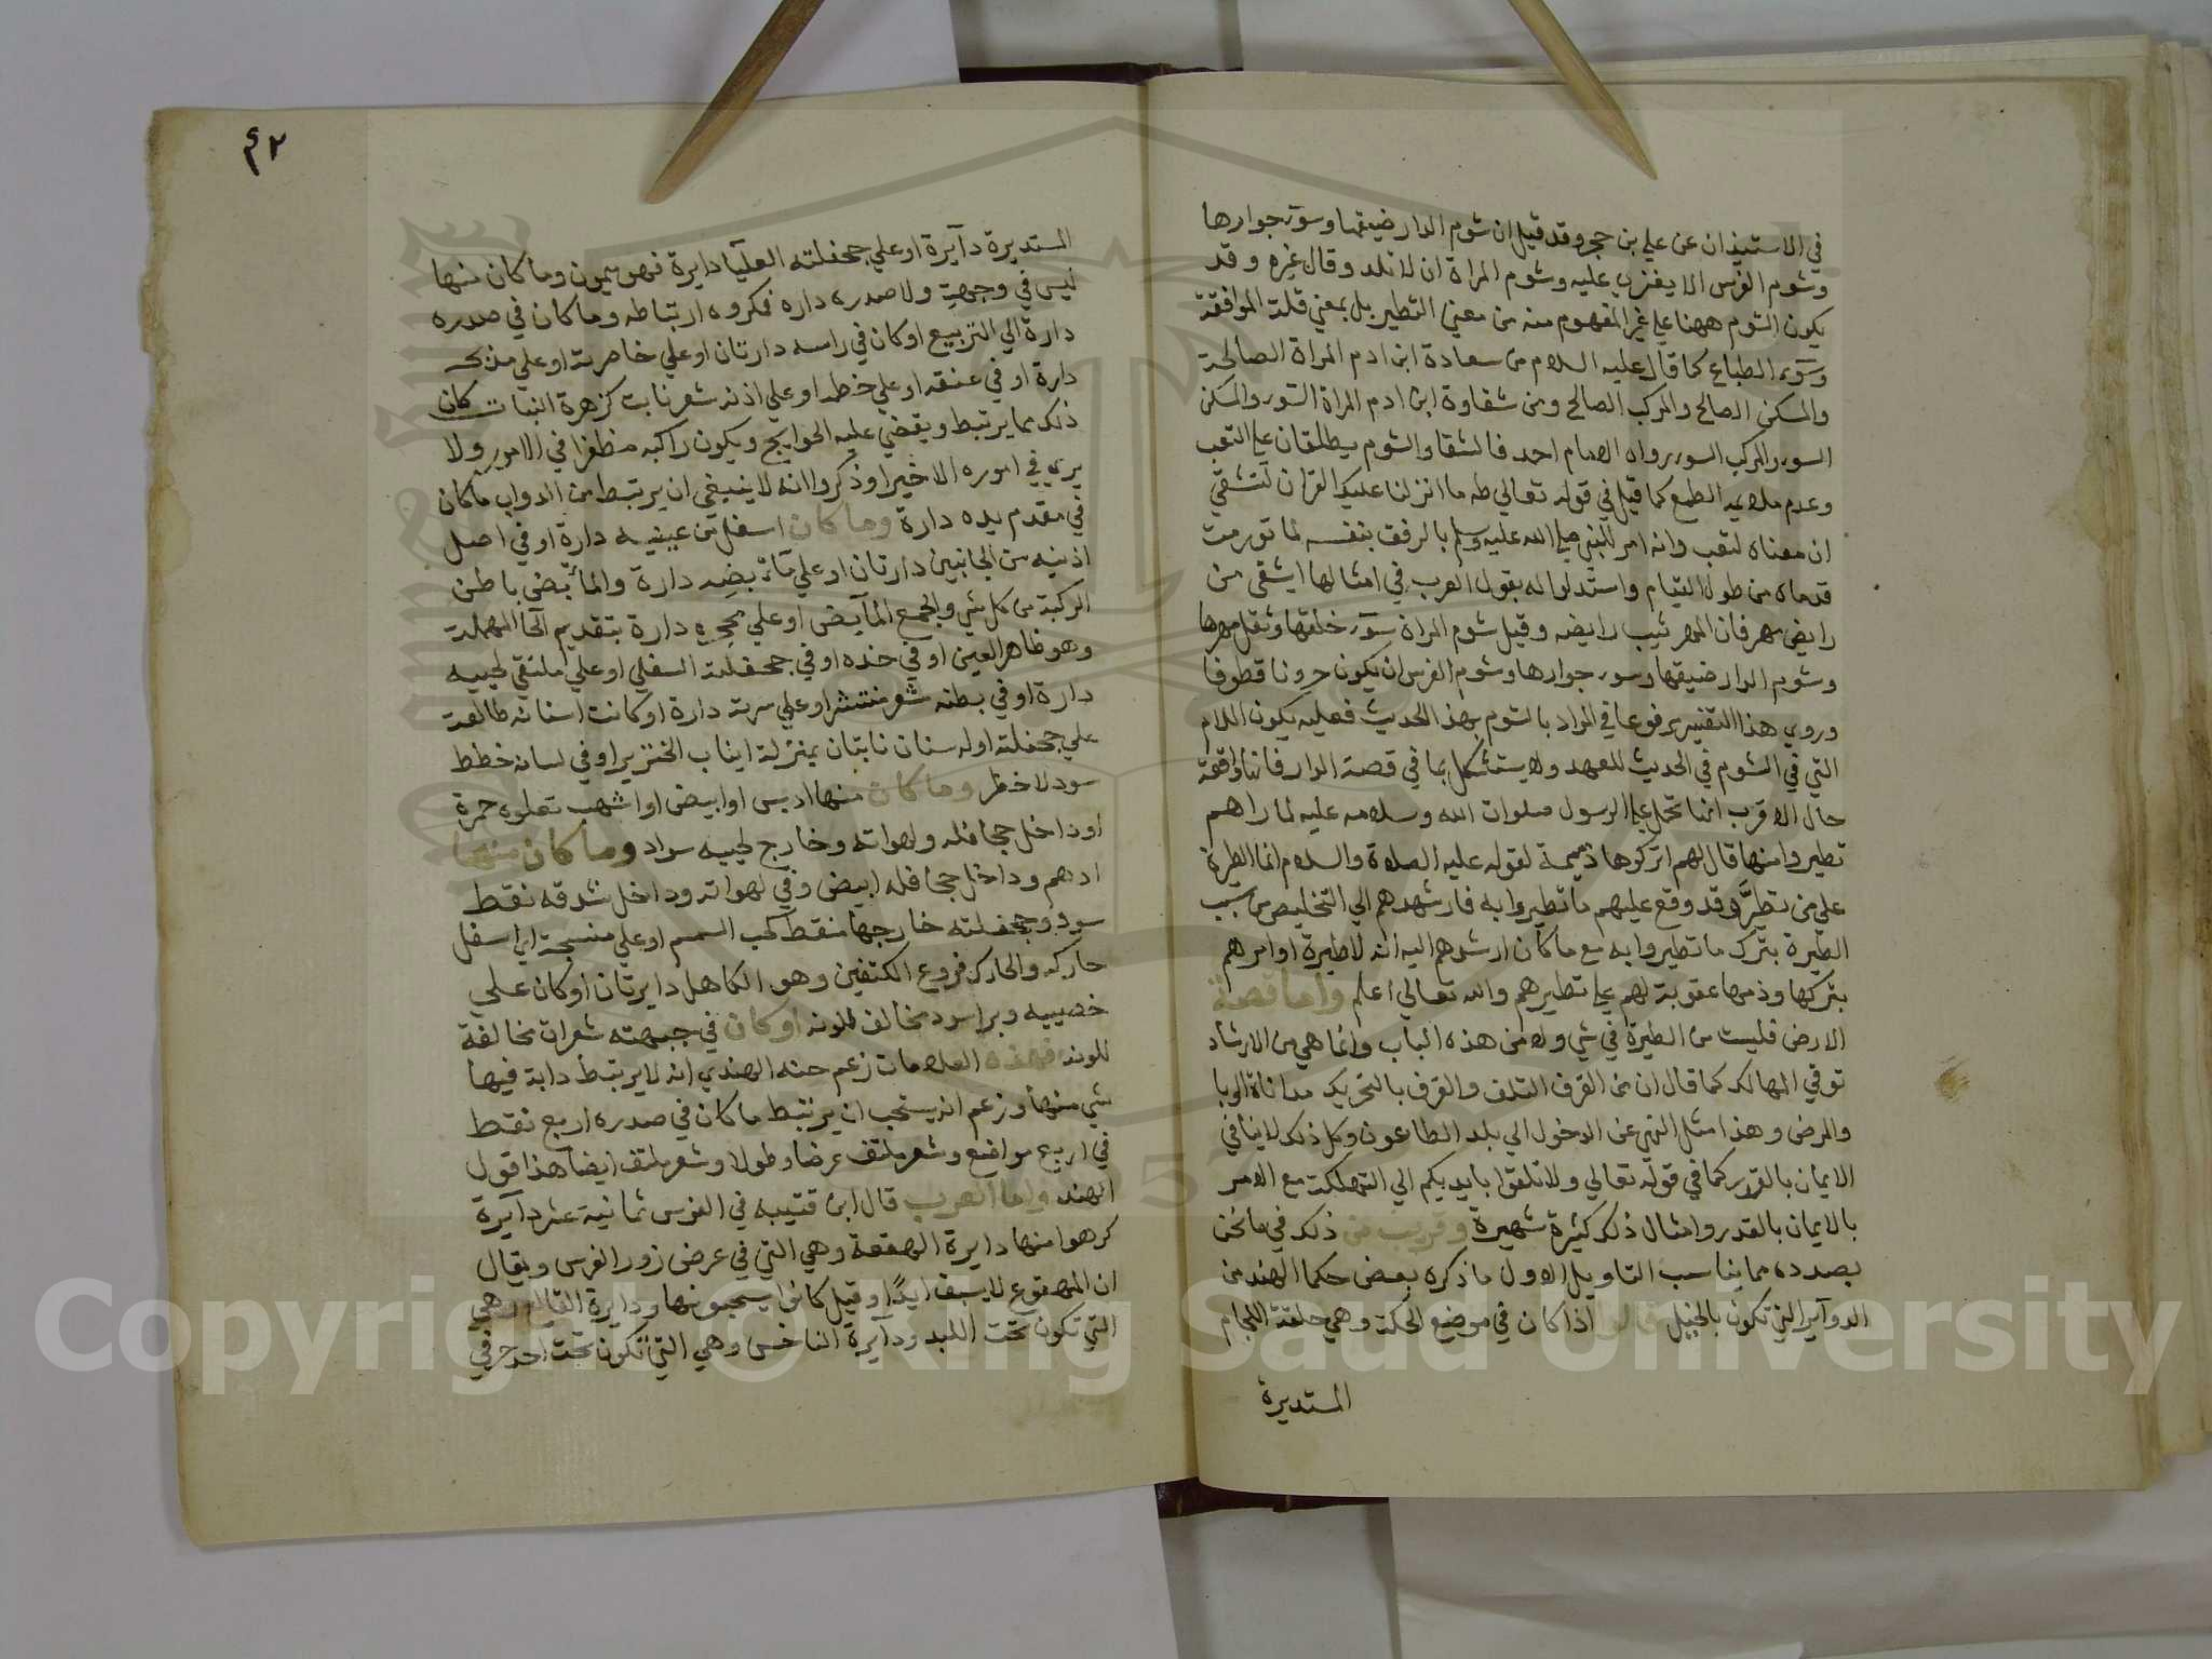 في الاستيذان عن علي بن حجر وقد قيل ان شوم الدار ضيقها وسوء جوارها
وشوم الفرس الا يغزي عليه وشوم المراة ان لا تلد وقال غيره وقد
يكون الشوم ههنا علي غير المفهوم منه من معني التطير بل بمعني قلة الموافقة
وسوء الطباع كما قال عليه السلام من سعادة ابن ادم المراة الصالحة
والمسكن الصالح والمركب الصالح ومن شقاوة ابن ادم المراة السوء والمسكن
السوء والمركب السوء رواه الامام احمد فالشقا والشوم يطلقان علي التعب
وعدم ملايمة الطبع كما قيل في قوله تعالي طه ما انزلنا عليك القران لتشقي
ان معناه لتعب وانه امر للنبي صلي الله عليه وسلم بالرفق بنفسه لما تورمت
قدماه من طول القيام واستدلوا له بقول العرب في امثالها اشقي من
رايض مهر فان المهر يتيب رايضه وقيل شوم المراة سوء خلقها وثقل مهرها
وشوم الدار ضيقها وسوء جوارها وشوم الفرس ان يكون حرونا قطوفا
وروي هذا التفسير مرفوعا في المراد بالشوم بهذا الحديث فعليه يكون اللام
التي في الشوم في الحديث للعهد ولا يستشكل بما في قصة الدار فانها واقعة
حال الاقرب انها تحمل علي الرسول صلوات الله وسلامه عليه لما راهم
تطيروا منها قال لهم اتركوها ذميمة لقوله عليه الصلاة والسلام انما الطيرة
علي من تطير وقد وقع عليهم ما تطيروا به فارشدهم الي التخليص من سبب
الطيرة بترك ما تطيروا به مع ما كان ارشدهم اليه انه لا طيرة او امرهم
بتركها وذمها عقوبة لهم علي تطيرهم والله تعالي اعلم واما قصة
الارض فليست من الطيرة في شي ولا من هذه الباب وانما هي من الارشاد
توقي المهالك كما قال ان من القرف التلف والقرف بالتحريك مداناة الوبا
والمرض وهذا مثل النهي عن الدخول الي بلد الطاعون وكل ذلك لا ينافي
الايمان بالقدر كما في قوله تعالي ولا تلقوا بايديكم الي التهلكة مع الامر
بالايمان بالقدر وامثال ذلك كثيرة شهيرة وقريب من ذلك في ما نحن
بصدده مما يناسب التاويل الاول ما ذكره بعض حكما الهند من
الدوآير التي تكون بالخيل قالوا اذا كان في موضع الحكمة وهي حلقة اللجام
المستديرة
٤٢
المستديرة دآيرة او علي جحفلته العليا دايرة فهو ميمون وما كان منها
ليس في وجهه ولا صدره داره فمكروه ارتباطه وما كان في صدره
دارة الي التربيع او كان في راسه دارتان او علي خاصرته او علي منخره
دارة او في عنقه او علي خطمه او علي اذنه شعر نابت كزهرة النبات كان
ذلك مما يرتبط ويقضي عليه الحوايج ويكون راكبه مظفرا في الامور ولا
يري في اموره الا خيرا وذكروا انه لا ينبغي ان يرتبط من الدواب ما كان
في مقدم يده دارة وما كان اسفل من عينيه دارة او في اصل
اذنيه من الجانبين دارتان او علي مآبضه دارة والمأبض باطن
الركبة من كل شي والجمع المآبض او علي محجره دارة بتقديم الحا المهملة
وهو ظاهر العين او في خده او في جحفلته السفلي او علي ملتقي لحييه
دارة او في بطنه شعر منتشر او علي سرته دارة او كانت اسنانه طالعة
علي جحفلته او له سنان نابتان بمنزلة انياب الخنزير او في لسانه خطط
سود لا خطر وما كان منها ادبس او ابيض او اشهب تعلوه حمرة
او داخل جحافله ولهواته وخارج لحييه سواد وما كان منها
ادهم وداخل جحافله ابيض وفي لهواته وداخل شدقه نقط
سود وجحفلته خارجها منقط كحب السمسم او علي منسجه اي اسفل
حاركه والحارك فروع الكتفين وهو الكاهل دايرتان او كان علي
خصييه وبر اسود مخالف للونه او كان في جبهته شعرات مخالفة
للونه فهذه العلامات زعم حنه الهندي انه لا يرتبط دابة فيها
شي منها وزعم انه يستحب ان يرتبط ما كان في صدره اربع نقط
في اربع مواضع وشعر ملتف عرضا وطولا وشعر ملتف ايضا هذا قول
الهند واما العرب قال ابن قتيبه في الفرس ثمانية عشر دآيرة
كرهوا منها دايرة الهقعة وهي التي في عرض زور الفرس ويقال
ان المهقوع لا يسبق ابدًا وقيل كانوا يستحبونها ودايرة القالع وهي
التي تكون تحت اللبد ودآيرة الناخس وهي التي تكون تحت احد حرفي
Copyright © King Saud University